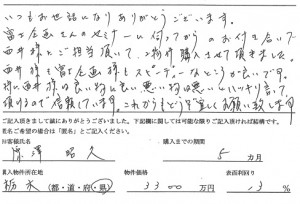 いつもお世話になりありがとうございます。
富士企画さんのセミナーに行ってからのお付き合いで
西井様とご担当頂いて、2物件購入させて頂きました。
西井様も富士企画様もスピーディーなところが良いです。
特に西井様は良い物は良い悪い物は悪いとハッキリ言って
頂けるので信頼しています。これからもどうぞ宜しくお願い致します
ご記入頂きまして誠にありがとうございました。下記欄に関しては可能な限りご記入頂ければ結構です。
名ご希望の場合は「匿名」とご記入ください。
お客様氏名 購入までの期間
澤 昭久 5 カ月
購入物件所在地 物件価格 表面利回り
栃木 (都・道・府・県) 3300 万円 13 %